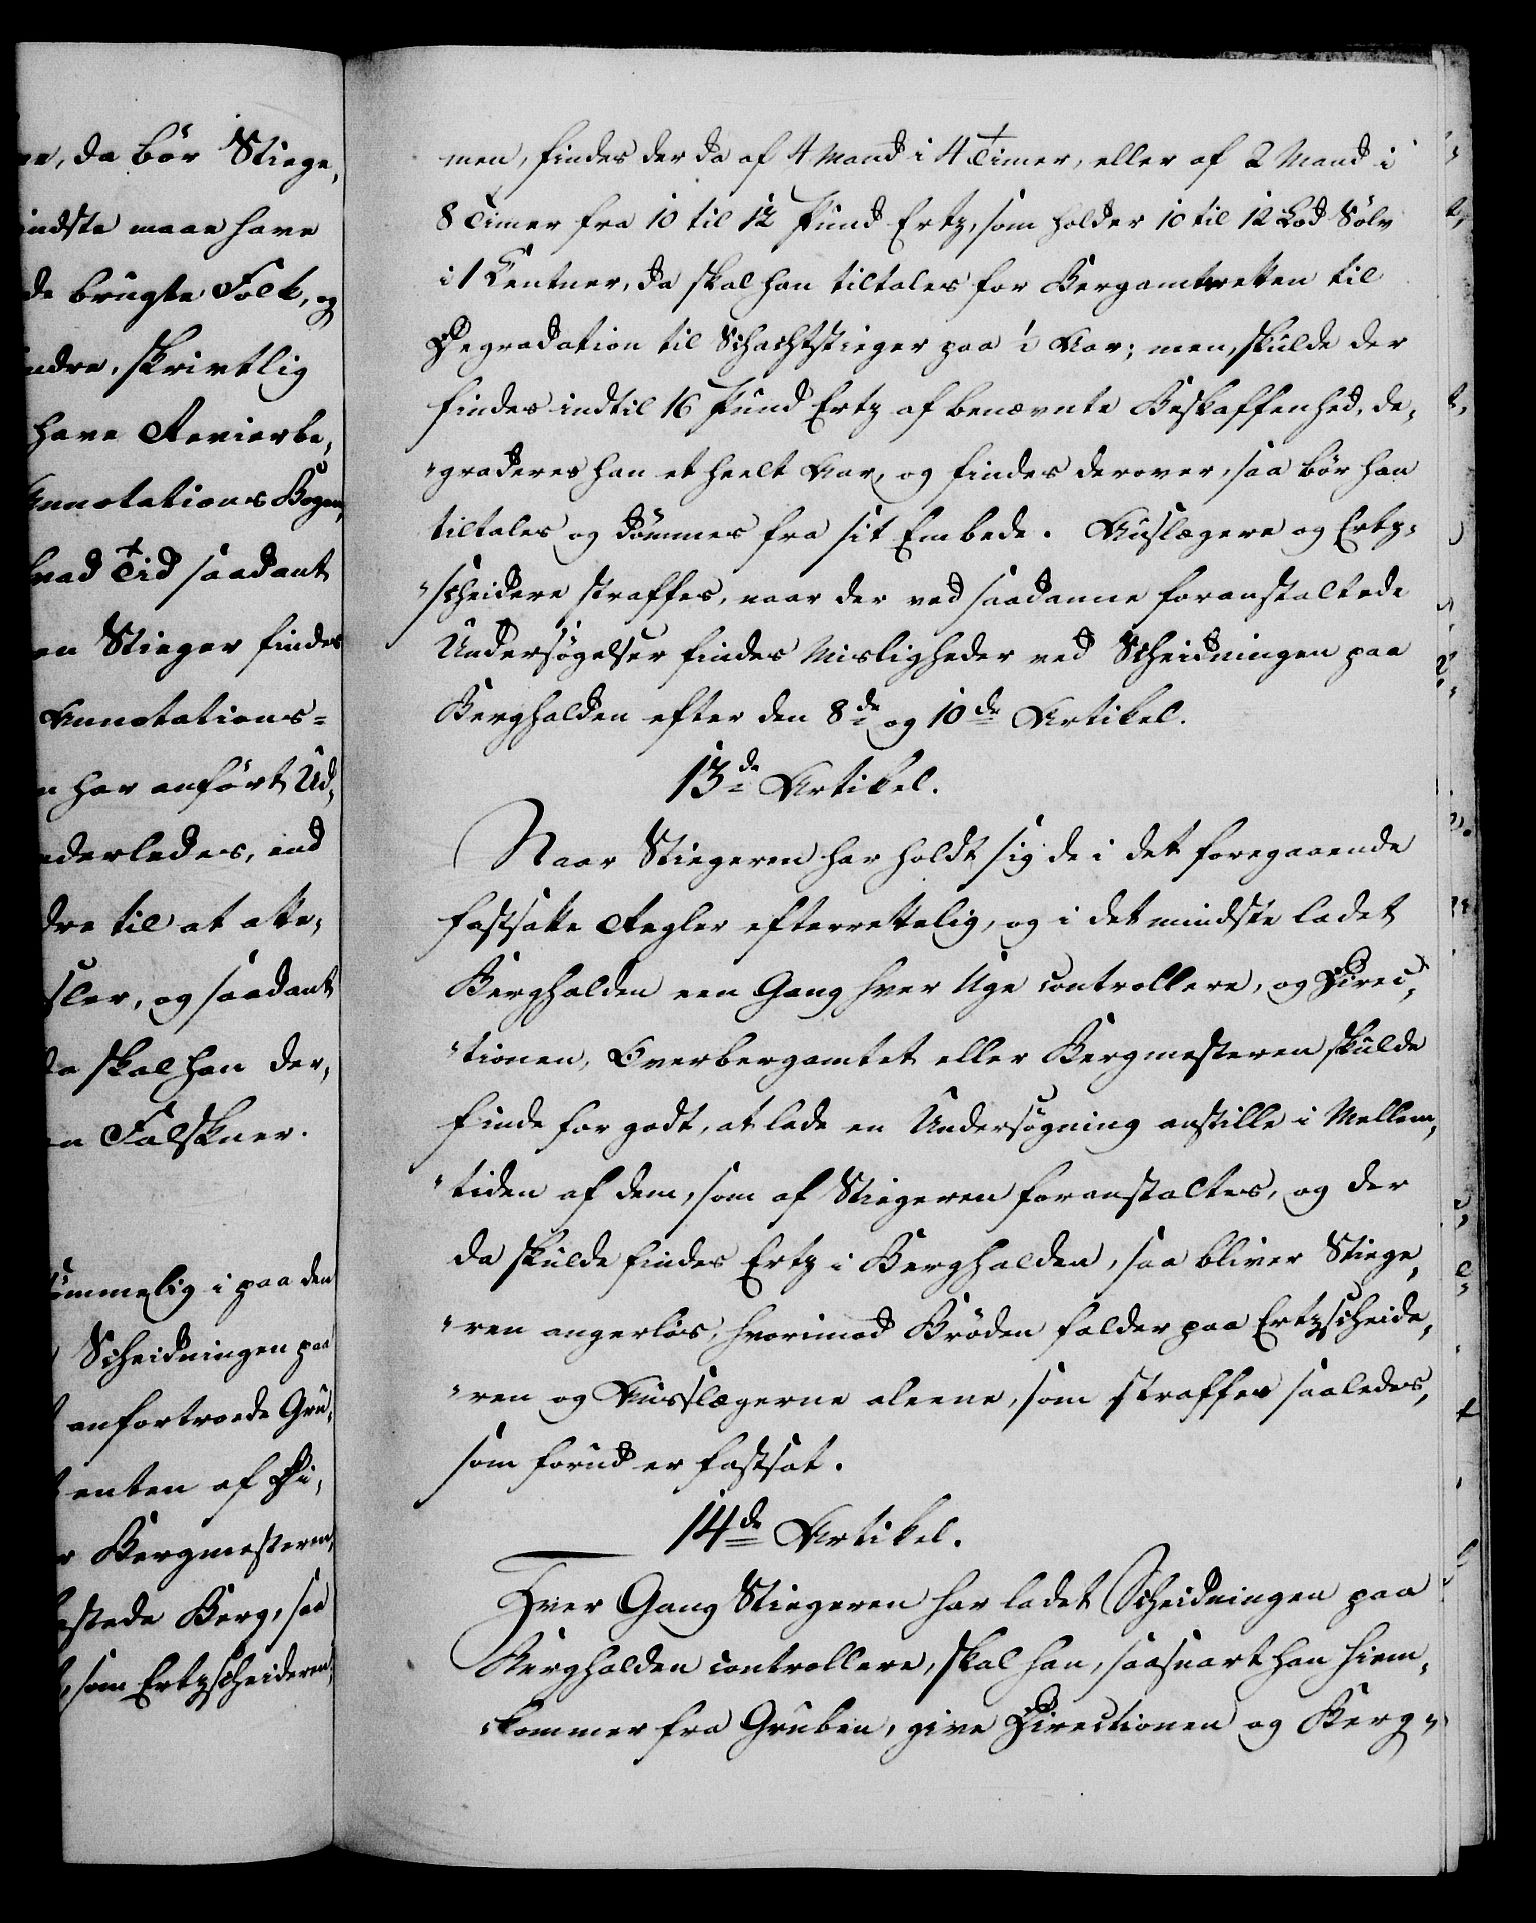 re, da bör Stiege,
indste maae have
de brugte Folk, og
ndre, skrivtlig
have Revierbe,
Annotations Bogen,
hvad Tid saadant
en Stieger findes
Annotations=
n har anfört Ud,
nderledes, end
dre til at atte,
sler, og saadant
da skal han der,
en Falskner.
ömmelig i paa den
Scheidningen paa
anfortroede Gru,
enten af Di,
r Bergmesteren,
stede Berg, saa
som Ertzscheideren,
men, findes der da af 4 Mand i 4 Timer, eller af 2 Mand i
8 Timer fra 10 til 12 Pund Ertz, som holder 10 til 12 Lod Sölv
i 1 Centner, da skal han tiltales for Bergamtsretten til
Degradation til Schachtstieger paa ½ Aar; men, skulde der
findes indtil 16 Pund Ertz af benævnte Beskaffenhed, de,
"graderes han et heelt Aar, og findes derover, saa bör han
tiltales og dömmes fra sit Embede. Ausslægere og Ertz,
"scheidere straffes, naar der ved saadanne foranstaltede
Undersögelser findes Misligheder ved Scheidningen paa
Berghalden efter den 8de og 10de Artikel.
13de Artikel.
Naar Stiegeren har holdt sig de i det foregaaende
fastsatte Regler efterrettelig, og i det mindste ladet
Berghalden een Gang hver Uge controllere, og Direc,
"tionen, Overbergamtet eller Bergmesteren skulde
finde for godt, at lade en Undersögning anstille i Mellem,
"tiden af dem, som af Stiegeren foranstaltes, og der
da skulde findes Ertz i Berghalden, saa bliver Stiege,
"ren angerlös, hvorimod Bröden falder paa Ertzscheide,
"ren og Ausslægerne aleene, som straffes saaledes,
som forud er fastsat.
14de Artikel.
Hver Gang Stiegeren har ladet Scheidningen paa
Berghalden controllere, skal han, saasnart han hiem,
"kommer fra Gruben, give Directionen og Berg,